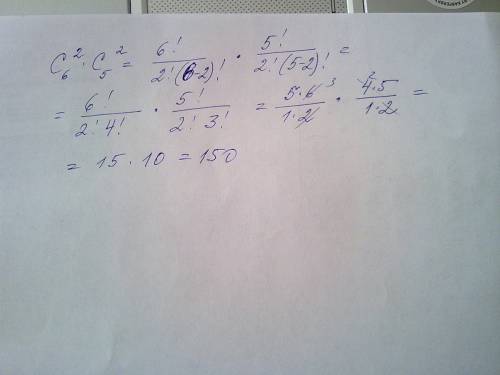 C₆² · C₅² = 6! / 2!(6-2)! · 5! / 2!(5-2)! =
= 6! / 2! 4! · 5! / 2! 3! = 5·6 ³ / 1·2 · ² 4·5 / 1·2 =
= 15 · 10 = 150